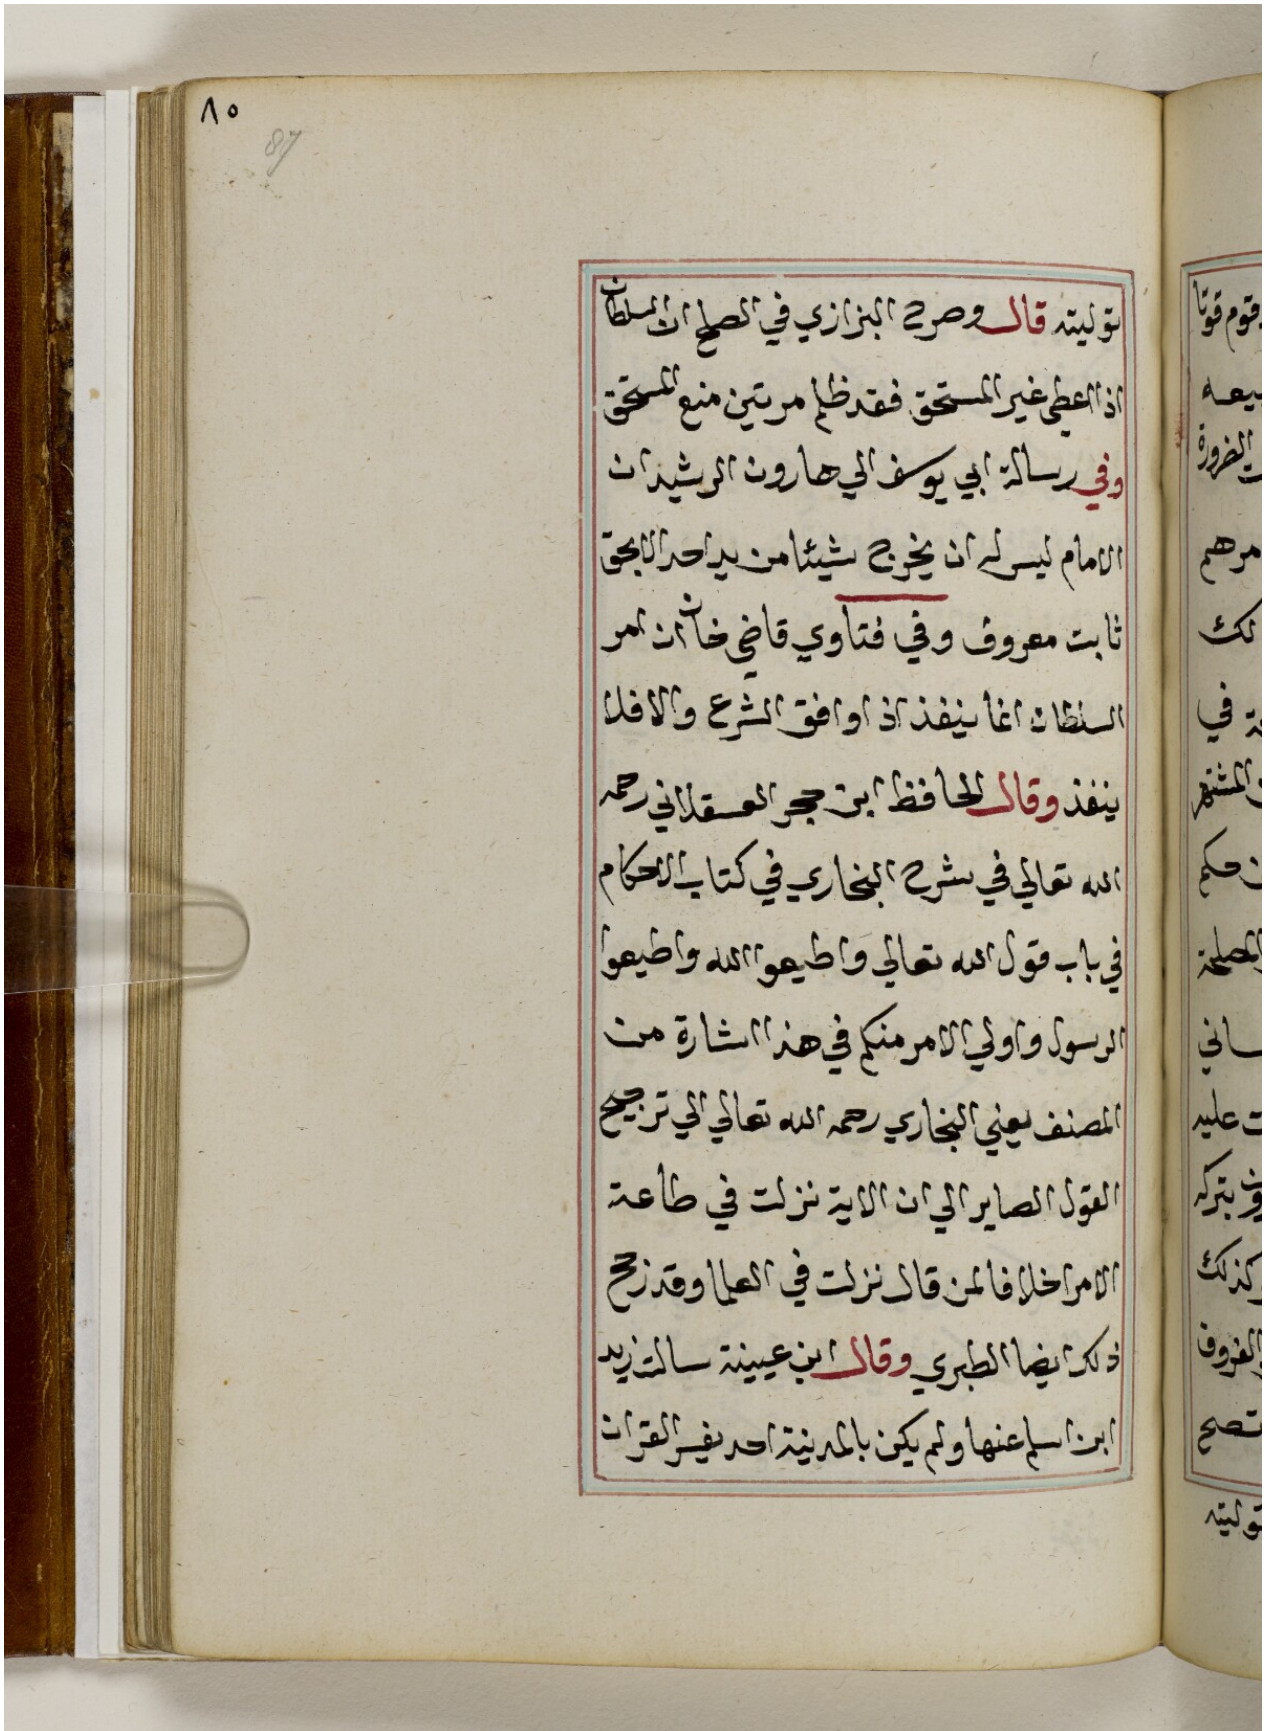 ٨٥
87
بتوليته قال وصرح البزازي في الصلح ان السلطان
اذا اعطى غير المستحق فقد ظلم مرتين منع المستحق
وفي رسالة ابي يوسف الي هارون الرشيد ان
الامام ليس له ان يخرج شيئا من يد احد الا بحق
ثابت معروف وفي فتاوي قاضي خان ان امر
السلطان انما ينفذ اذا وافق الشرع والا فلا
ينفذ وقال الحافظ ابن حجر العسقلاني رحمه
الله تعالي في شرح البخاري في كتاب الاحكام
في باب قول الله تعالي واطيعوا الله واطيعوا
الرسول واولي الامر منكم في هذا اشارة من
المصنف يعني البخاري رحمه الله تعالي الي ترجيح
القول الصاير الي ان الاية نزلت في طاعة
الامرا خلافا لمن قال نزلت في العلما وقد رجح
ذلك ايضا الطبري وقال ابن عيينة سالت زيد
ابن اسلم عنها ولم يكن بالمدينة احد يفسر القران
قوم قوتا
بيعه
الضرورة
امرهم
لك
في
المشتهر
حكم
المصلحة
ساني
ت عليه
بتركه
كذلك
المعروف
تصح
توليته